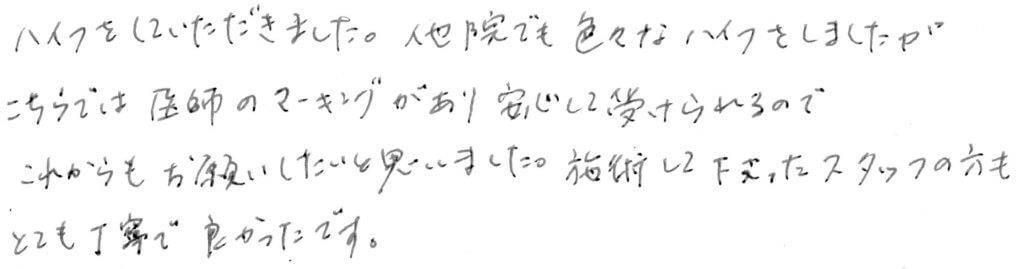 ハイフをしていただきました。他院でも色々なハイフをしましたが
こちらでは医師のマーキングがあり安心して受けられるので
これからもお願いしたいと思いました。施術して下さったスタッフの方も
とても丁寧で良かったです。